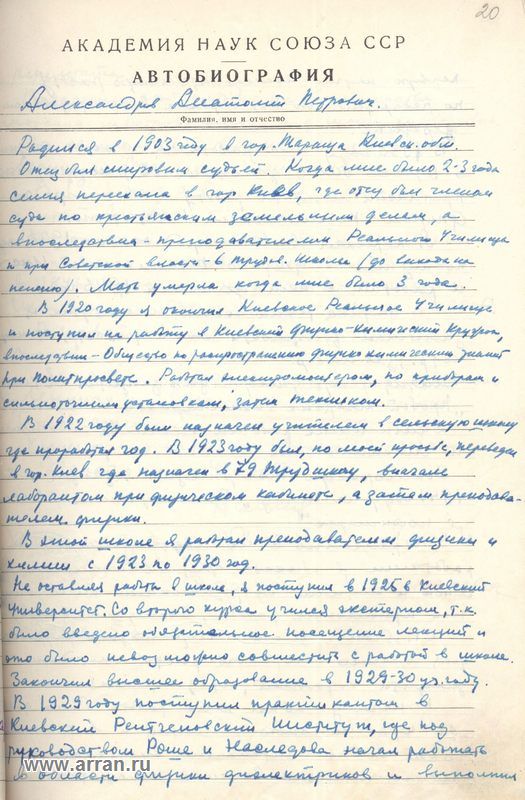 20
АКАДЕМИЯ НАУК СОЮЗА ССР
АВТОБИОГРАФИЯ
Александров Анатолий Петрович.
Фамилия, имя и отчество
Родился в 1903 году в гор. Тараща Киевск. обл.
Отец был мировым судьей. Когда мне было 2-3 года
семья переехала в гор Киев, где отец был членом
суда по крестьянским земельным делам, а
впоследствии – преподавателем Реального Училища
и при Советской власти – в трудов. школах (до выхода на
пенсию). Мать умерла когда мне было 3 года.
В 1920 году я окончил Киевское Реальное Училище
и поступил на работу в Киевский физико-химический Кружок,
впоследствии – Общество по распространению физико химических знаний
при Политпросвете. Работал электромонтером, по приборам и
сильноточным установкам, затем техником.
В 1922 году был назначен учителем в сельскую школу
где проработал год. В 1923 году был, по моей просьбе, переведен
в гор. Киев где назначен в 79 Трудшколу, вначале
лаборантом при физическом кабинете, а затем преподава-
телем физики.
В этой школе я работал преподавателем физики и
химии с 1923 по 1930 год.
Не оставляя работы в школе, я поступил в 1925 в Киевский
Университет. Со второго курса учился экстерном, т.к.
было введено обязательное посещение лекций и
это было невозможно совместить с работой в школе.
Закончил высшее образование в 1929-30 уч. году.
В 1929 году поступил практикантом в
Киевский Рентгеновский Институт, где под
руководством Роше и Наследова начал работать
в области физики диэлектриков и выполнил
www.arran.ru